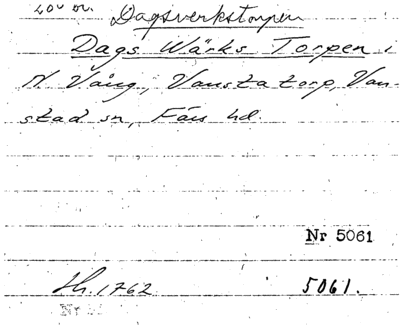 Dagsverkstorpen
Dags Wärks Torpen i
N. Vång, Vanstatorp, Van-
stad sn, Färs hd.
Nr 5061
Lh. 1762 5061.